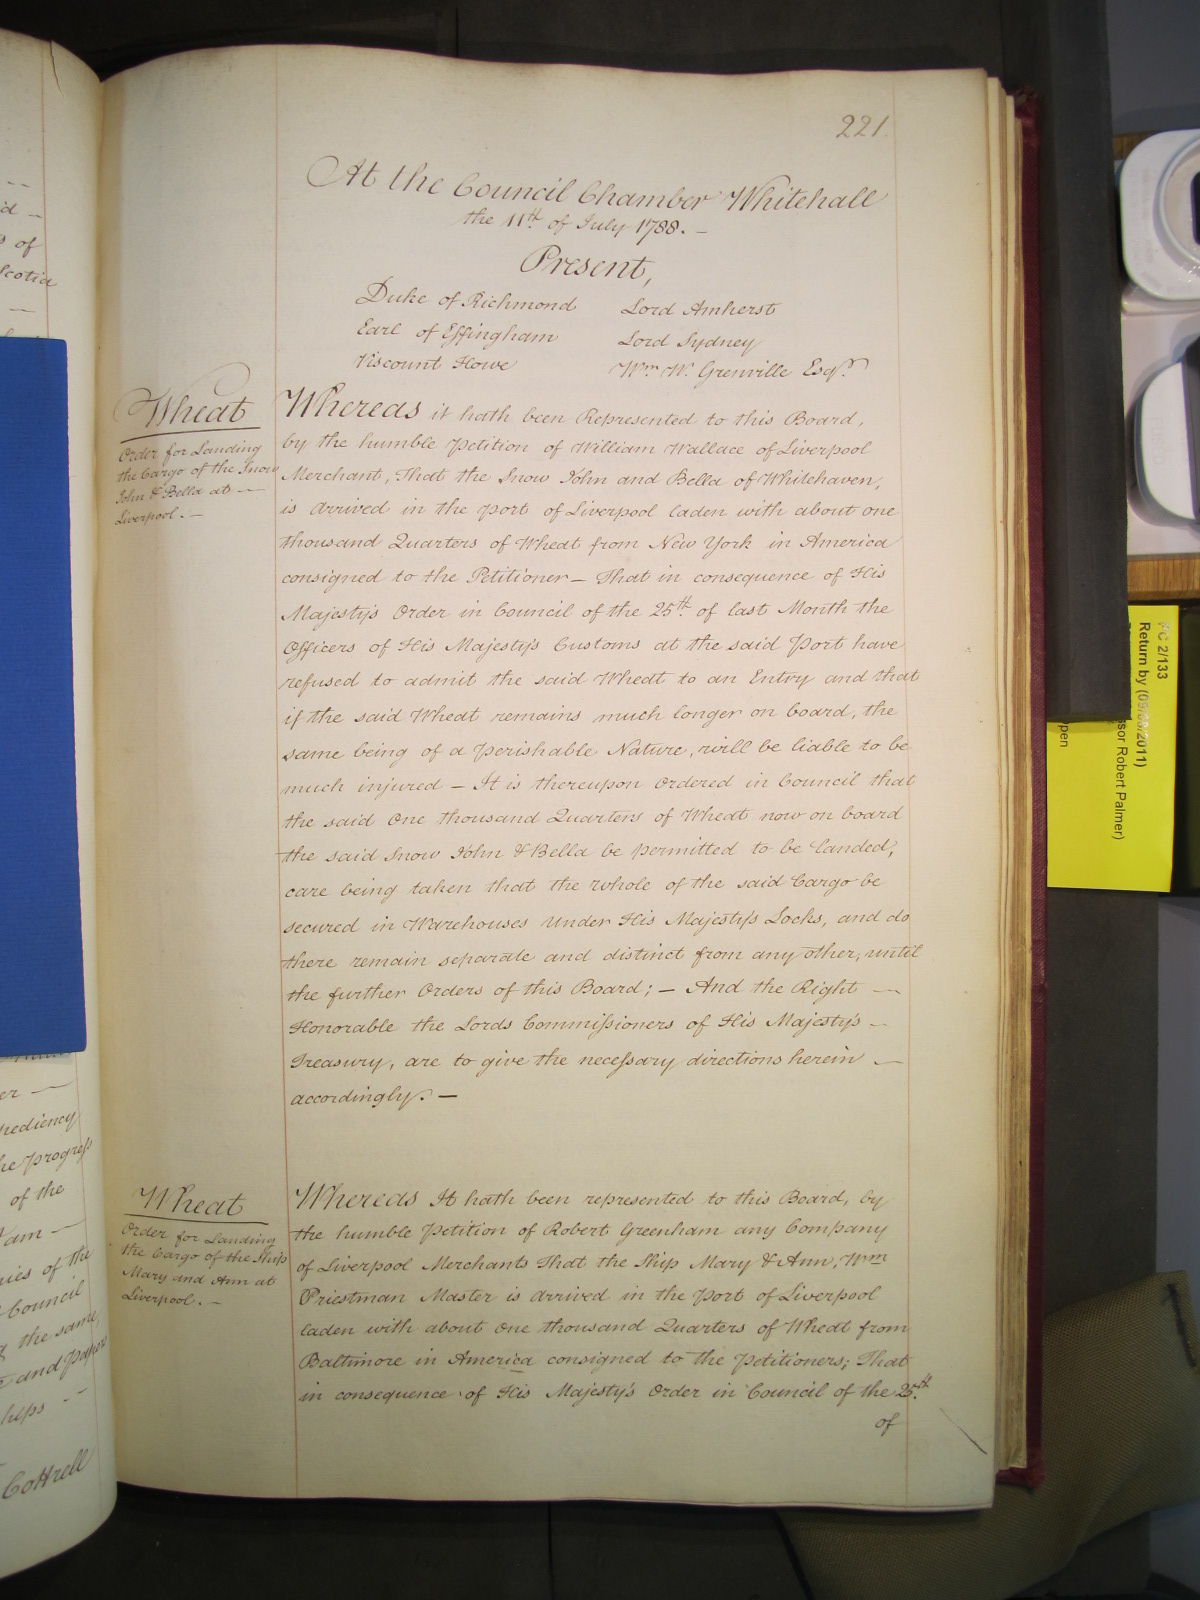 221.
At the Council Chamber Whitehall
the 11th of July 1788. –
Present,
Duke of Richmond Lord Amherst
Earl of Effingham Lord Sydney
Viscount Howe Wm W. Grenville Esqr.
Wheat
Order for Landing
the Cargo of the Snow
John & Bella at —
Liverpool. –
Whereas it hath been Represented to this Board,
by the humble Petition of William Wallace of Liverpool
Merchant, That the Snow John and Bella of Whitehaven,
is arrived in the port of Liverpool laden with about one
thousand Quarters of Wheat from New York in America
consigned to the Petitioner – That in consequence of His
Majesty's Order in Council of the 25th of last Month the
Officers of His Majesty's Customs at the said Port have
refused to admit the said Wheat to an Entry and that
if the said Wheat remains much longer on board, the
same being of a perishable Nature, will be liable to be
much injured – It is thereupon Ordered in Council that
the said One thousand Quarters of Wheat now on board
the said Snow John & Bella be permitted to be landed,
care being taken that the whole of the said Cargo be
secured in Warehouses under His Majesty's Locks, and do
there remain separate and distinct from any other, until
the further Orders of this Board; – And the Right —
Honorable the Lords Commissioners of His Majesty's –
Treasury, are to give the necessary directions herein —
accordingly. –
Wheat
Order for Landing
the Cargo of the Ship
Mary and Ann at
Liverpool. –
Whereas It hath been represented to this Board, by
the humble Petition of Robert Greenham any Company
of Liverpool Merchants That the Ship Mary & Ann, Wm
Priestman Master is arrived in the Port of Liverpool
laden with about One thousand Quarters of Wheat from
Baltimore in America consigned to the Petitioners; That
in consequence of His Majesty's Order in Council of the 25th.
of
of
Scotia
of the
Council
the same,
Cottrell
PC 2/133
Return by (09/09/2011)
sor Robert Palmer)